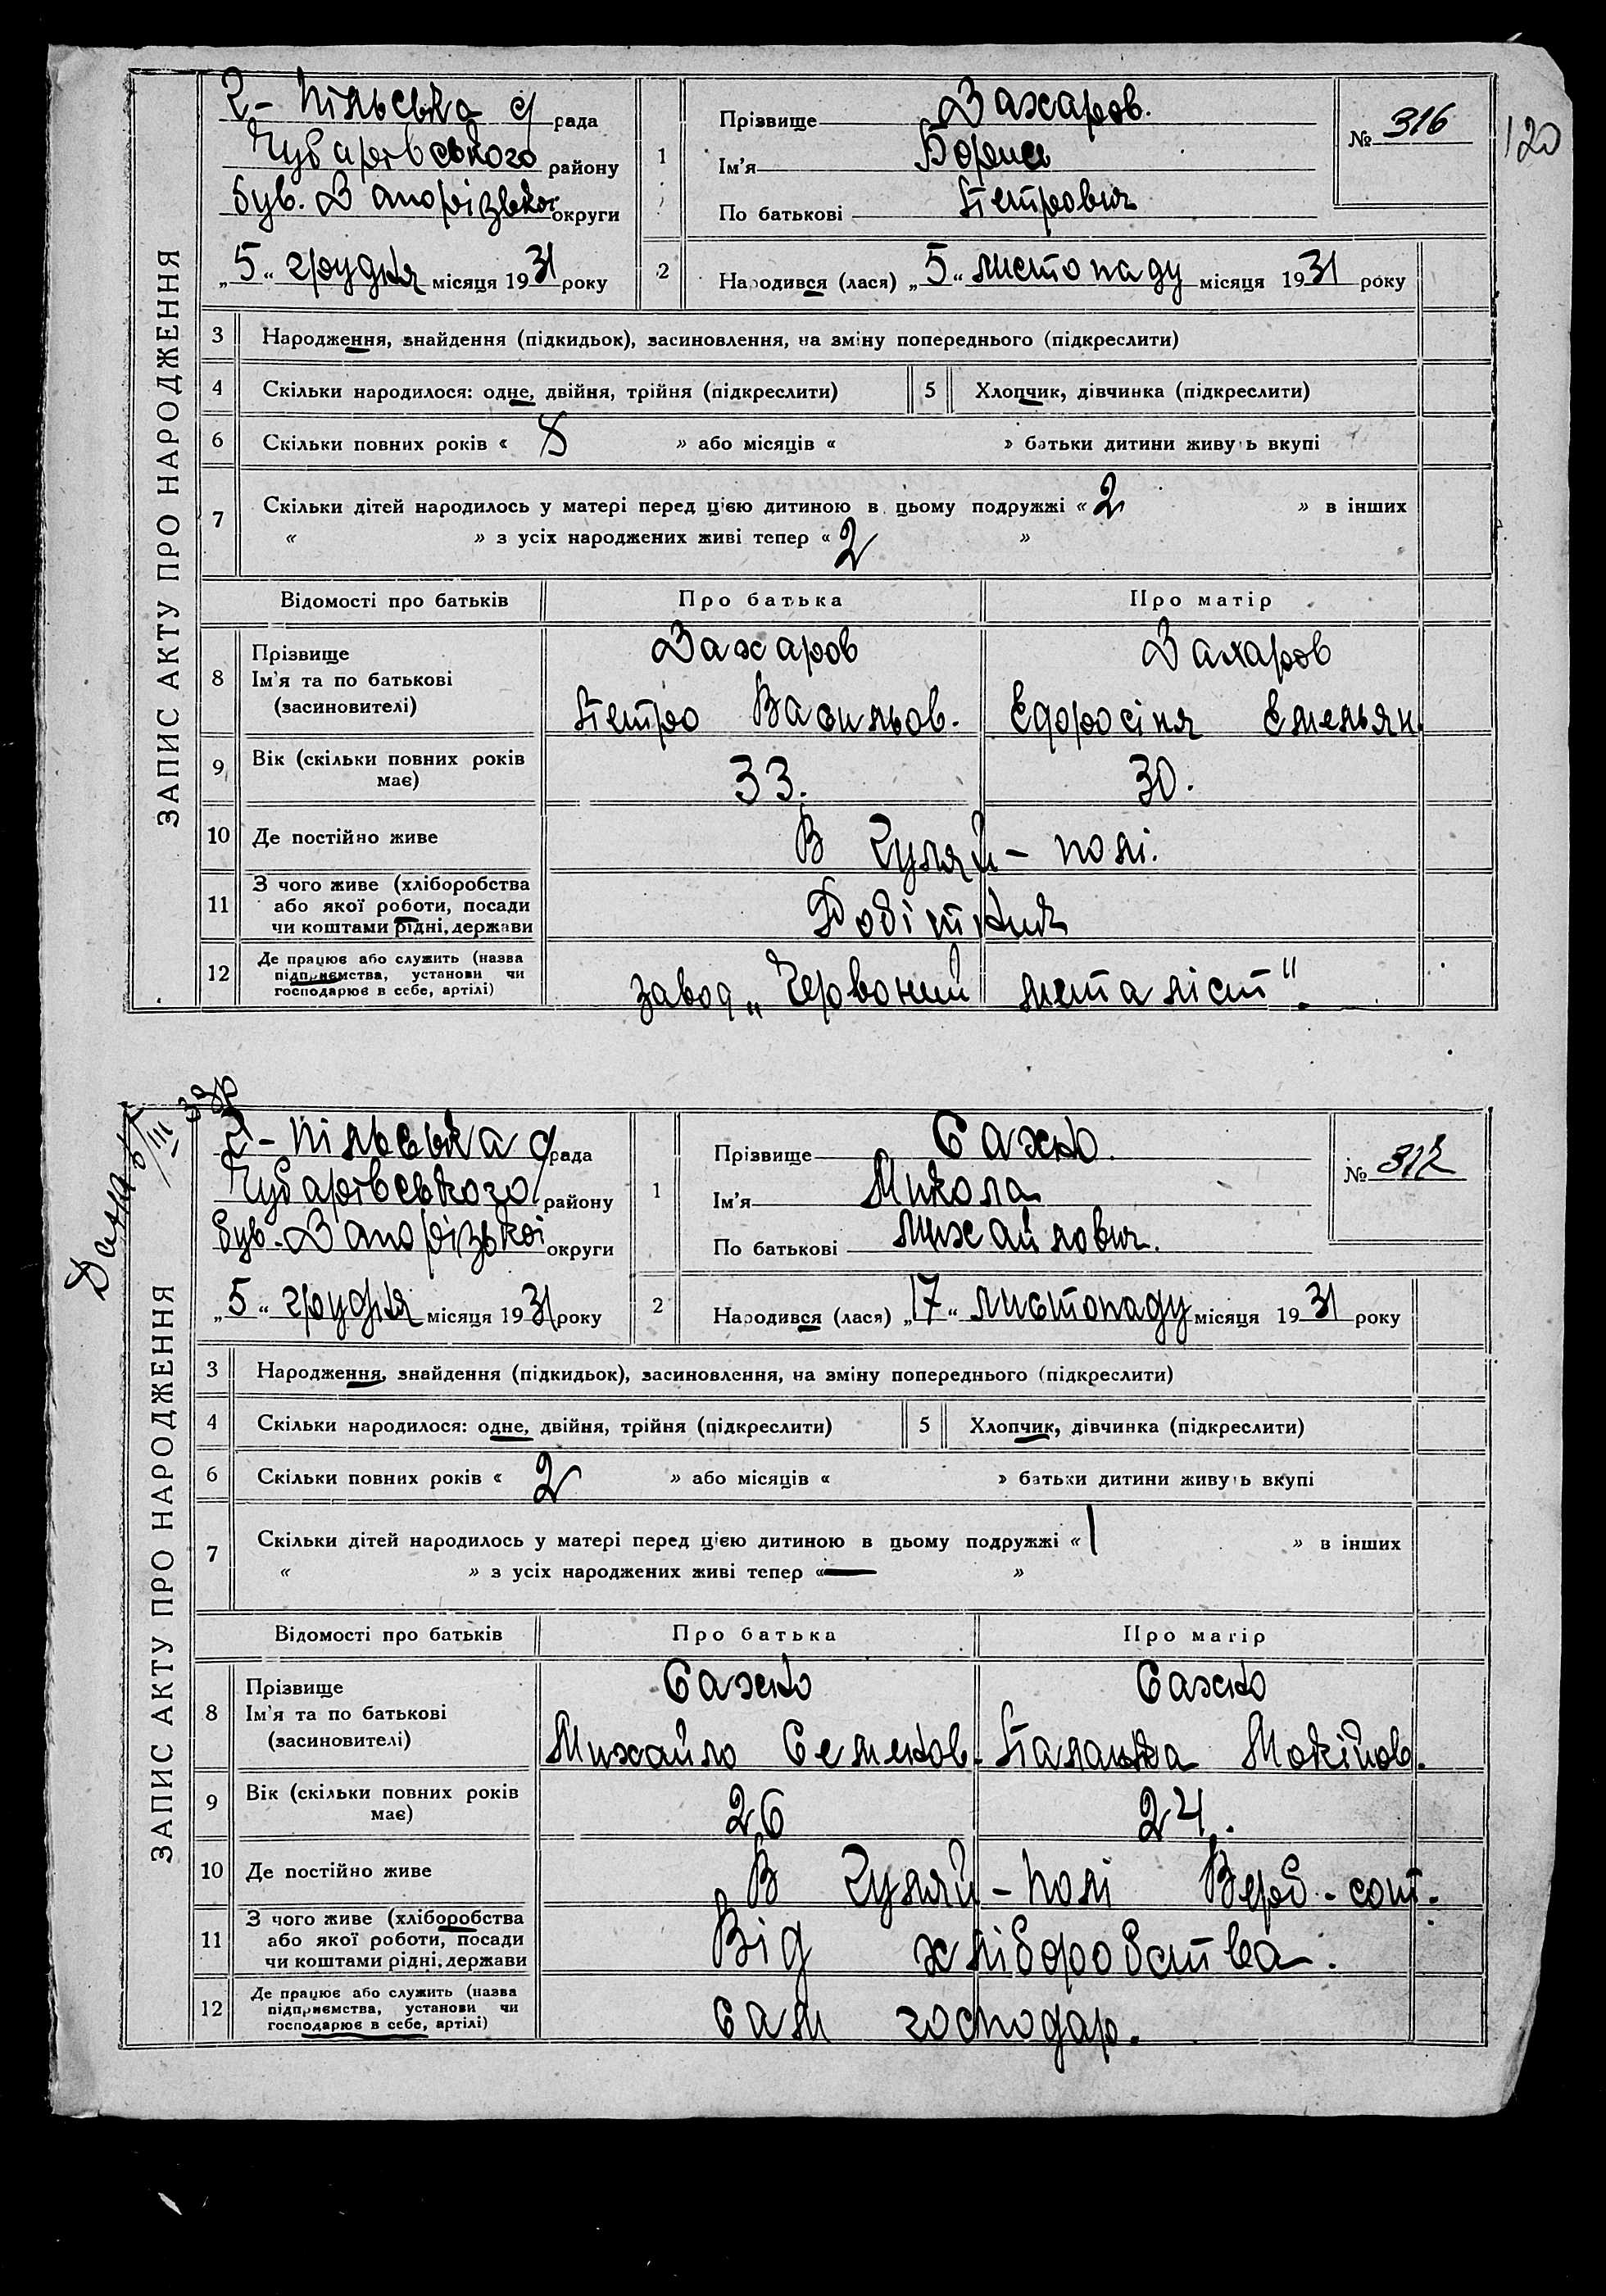 120
ЗАПИС АКТУ ПРО НАРОДЖЕННЯ
Г-Пільська с/рада
Чубарівського району
був. Запорізької округи
„5“ грудня місяця 1931 року
1 Прізвище Захаров.
Ім'я Борис
По батькові Петрович
№ 316
2 Народився (лася) „5“ листопаду місяця 1931 року
3 Народження, знайдення (підкидьок), засиновлення, на зміну попереднього (підкреслити)
4 Скільки народилося: одне, двійня, трійня (підкреслити) 5 Хлопчик, дівчинка (підкреслити)
6 Скільки повних років « 8 » або місяців « » батьки дитини живуть вкупі
7 Скільки дітей народилось у матері перед цією дитиною в цьому подружжі « 2 » в інших
« » з усіх народжених живі тепер « 2 »
Відомості про батьків Про батька Про матір
8 Прізвище
Ім'я та по батькові
(засиновителі)
Захаров Захаров
Петро Васильов. Єфросіня Емельян.
9 Вік (скільки повних років
має) 33. 30.
10 Де постійно живе В Гуляй-полі.
11 З чого живе (хліборобства
або якої роботи, посади
чи коштами рідні, держави
Робітник
12 Де працює або служить (назва
підприємства, установи чи
господарює в себе, артілі)
завод „Червоний металіст".
ЗАПИС АКТУ ПРО НАРОДЖЕННЯ
Г-Пільська с/рада
Чубарівського району
був. Запорізької округи
„5“ грудня місяця 1931 року
1 Прізвище Сахно.
Ім'я Микола
По батькові Михайлович.
№ 317
2 Народився (лася) „17“ листопаду місяця 1931 року
3 Народження, знайдення (підкидьок), засиновлення, на зміну попереднього (підкреслити)
4 Скільки народилося: одне, двійня, трійня (підкреслити) 5 Хлопчик, дівчинка (підкреслити)
6 Скільки повних років « 2 » або місяців « » батьки дитини живуть вкупі
7 Скільки дітей народилось у матері перед цією дитиною в цьому подружжі « 1 » в інших
« » з усіх народжених живі тепер « — »
Відомості про батьків Про батька Про матір
8 Прізвище
Ім'я та по батькові
(засиновителі)
Сахно Сахно
Михайло Семенов. Палашка Мокійов.
9 Вік (скільки повних років
має) 26 24.
10 Де постійно живе В Гуляй-полі Верб.-сот.
11 З чого живе (хліборобства
або якої роботи, посади
чи коштами рідні, держави
Від хліборобства.
12 Де працює або служить (назва
підприємства, установи чи
господарює в себе, артілі)
сам господар.